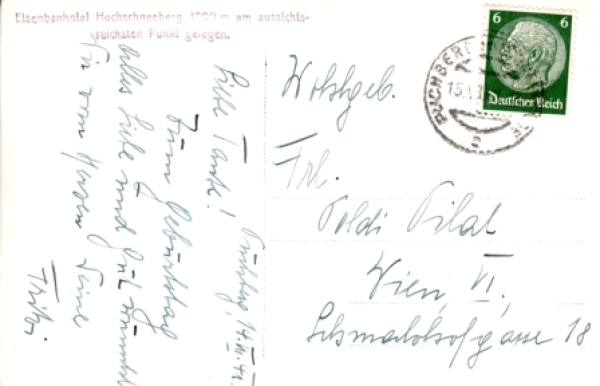 Eisenbahnhotel Hochschneeberg 1800 m am aussichts-
reichsten Punkt gelegen.
Puchberg, 14. VI. 41.
Liebe Tante!
Zum Geburtstag
alles Liebe und Gute wünscht
Dir vom Herzen Deine
Fritzi
Wohlgeb.
Frl.
Poldi Pilat
Wien, VI.,
Schmalzhofgasse 18
6 6
Deutsches Reich
PUCHBERG
15.
a